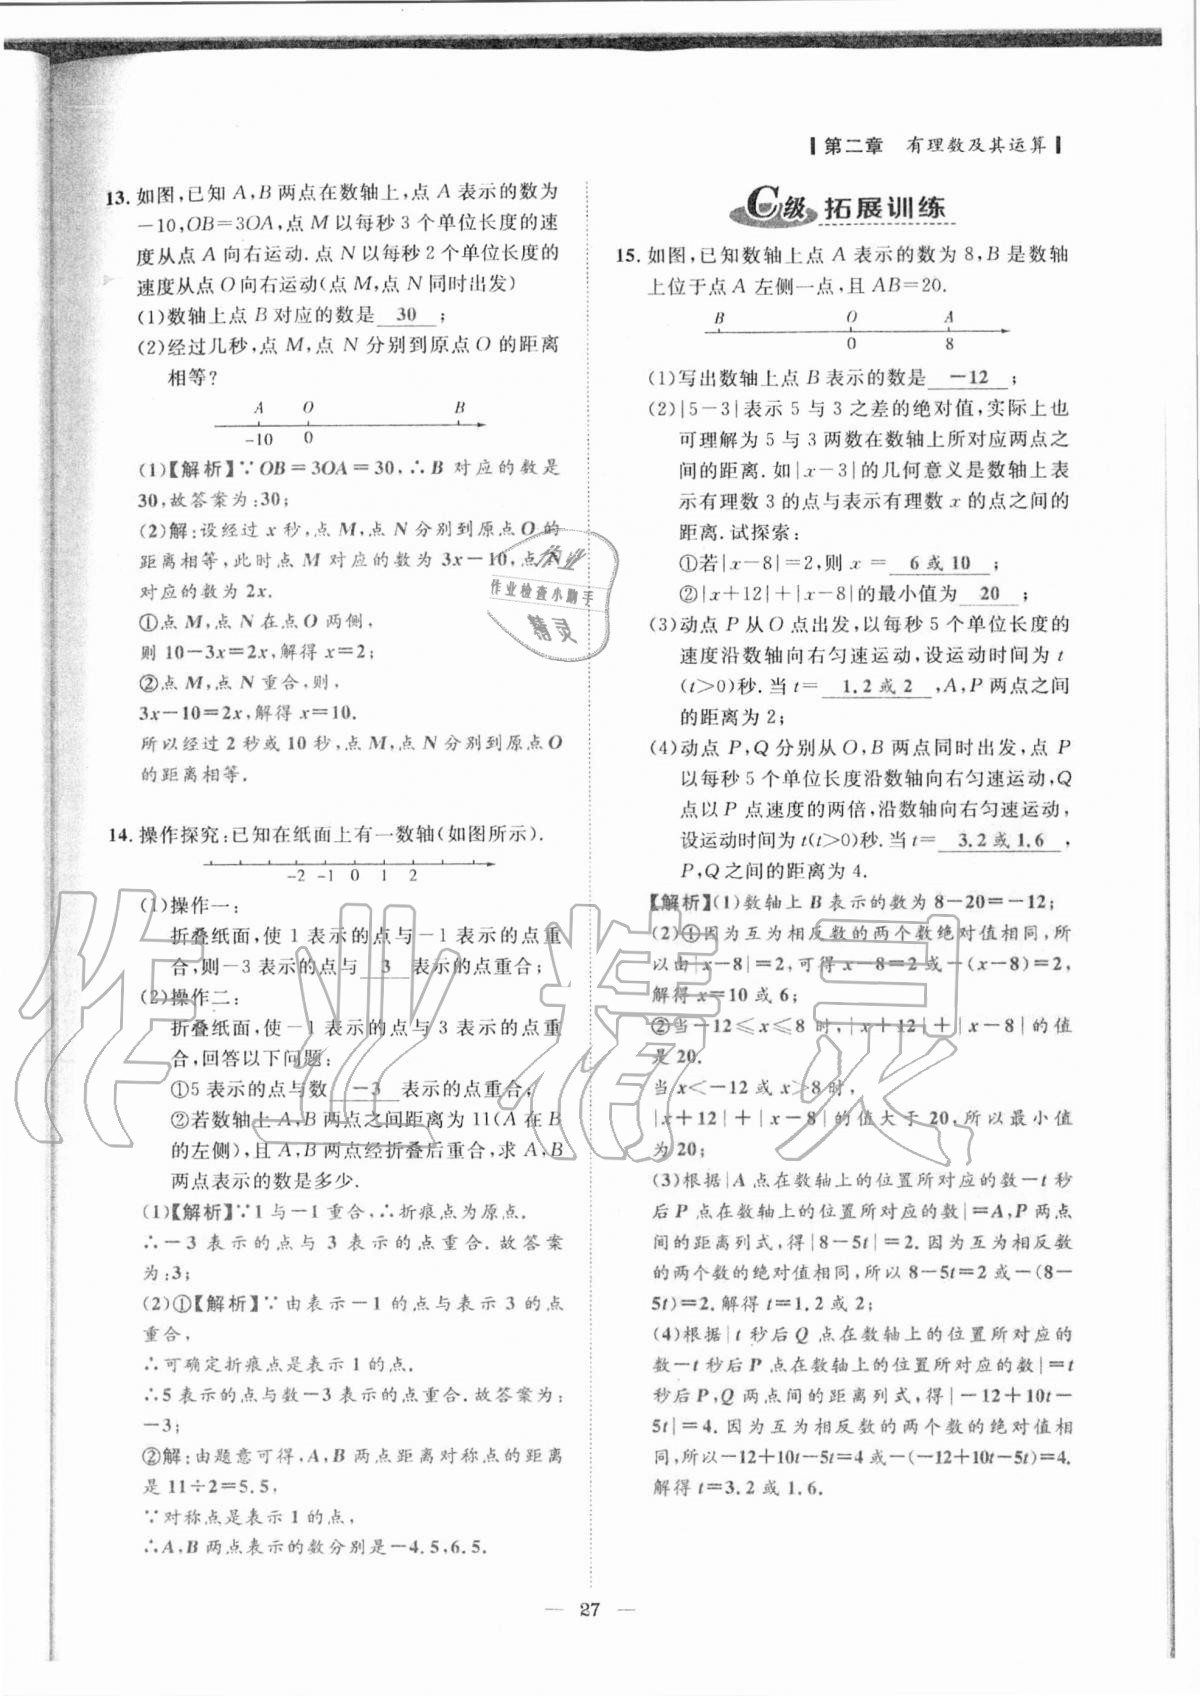 第二章 有理数及其运算
13. 如图,已知 A,B 两点在数轴上,点 A 表示的数为
-10,OB=3OA,点 M 以每秒 3 个单位长度的速
度从点 A 向右运动.点 N 以每秒 2 个单位长度的
速度从点 O 向右运动(点 M,点 N 同时出发)
(1)数轴上点 B 对应的数是 30 ;
(2)经过几秒,点 M,点 N 分别到原点 O 的距离
相等?
A O B
-10 0
(1)【解析】∵OB=3OA=30,∴B 对应的数是
30,故答案为:30;
(2)解:设经过 x 秒,点 M,点 N 分别到原点 O 的
距离相等,此时点 M 对应的数为 3x-10,点 N
对应的数为 2x.
①点 M,点 N 在点 O 两侧,
则 10-3x=2x,解得 x=2;
②点 M,点 N 重合,则,
3x-10=2x,解得 x=10.
所以经过 2 秒或 10 秒,点 M,点 N 分别到原点 O
的距离相等.
14. 操作探究:已知在纸面上有一数轴(如图所示).
-2 -1 0 1 2
(1)操作一:
折叠纸面,使 1 表示的点与-1 表示的点重
合,则-3 表示的点与 3 表示的点重合;
(2)操作二:
折叠纸面,使-1 表示的点与 3 表示的点重
合,回答以下问题:
①5 表示的点与数 -3 表示的点重合;
②若数轴上 A,B 两点之间距离为 11(A 在 B
的左侧),且 A,B 两点经折叠后重合,求 A,B
两点表示的数是多少.
(1)【解析】∵1 与-1 重合,∴折痕点为原点.
∴-3 表示的点与 3 表示的点重合.故答案
为:3;
(2)①【解析】∵由表示-1 的点与表示 3 的点
重合,
∴可确定折痕点是表示 1 的点.
∴5 表示的点与数-3 表示的点重合.故答案为:
-3;
②解:由题意可得,A,B 两点距离对称点的距离
是 11÷2=5.5,
∵对称点是表示 1 的点,
∴A,B 两点表示的数分别是-4.5,6.5.
C级 拓展训练
15. 如图,已知数轴上点 A 表示的数为 8,B 是数轴
上位于点 A 左侧一点,且 AB=20.
B O A
0 8
(1)写出数轴上点 B 表示的数是 -12 ;
(2)|5-3|表示 5 与 3 之差的绝对值,实际上也
可理解为 5 与 3 两数在数轴上所对应两点之
间的距离.如|x-3|的几何意义是数轴上表
示有理数 3 的点与表示有理数 x 的点之间的
距离.试探索:
①若|x-8|=2,则 x = 6或10 ;
②|x+12|+|x-8|的最小值为 20 ;
(3)动点 P 从 O 点出发,以每秒 5 个单位长度的
速度沿数轴向右匀速运动,设运动时间为 t
(t>0)秒.当 t= 1.2或2 ,A,P 两点之间
的距离为 2;
(4)动点 P,Q 分别从 O,B 两点同时出发,点 P
以每秒 5 个单位长度沿数轴向右匀速运动,Q
点以 P 点速度的两倍,沿数轴向右匀速运动,
设运动时间为 t(t>0)秒.当 t= 3.2或1.6 ,
P,Q 之间的距离为 4.
【解析】(1)数轴上 B 表示的数为 8-20=-12;
(2)①因为互为相反数的两个数绝对值相同,所
以由|x-8|=2,可得 x-8=2 或-(x-8)=2,
解得 x=10 或 6;
②当-12≤x≤8 时,|x+12|+|x-8|的值
是 20.
当 x<-12 或 x>8 时,
|x+12|+|x-8|的值大于 20,所以最小值
为 20;
(3)根据|A 点在数轴上的位置所对应的数-t 秒
后 P 点在数轴上的位置所对应的数|=A,P 两点
间的距离列式,得|8-5t|=2.因为互为相反数
的两个数的绝对值相同,所以 8-5t=2 或-(8-
5t)=2.解得 t=1.2 或 2;
(4)根据|t 秒后 Q 点在数轴上的位置所对应的
数-t 秒后 P 点在数轴上的位置所对应的数|=t
秒后 P,Q 两点间的距离列式,得|-12+10t-
5t|=4.因为互为相反数的两个数的绝对值相
同,所以-12+10t-5t=4 或-(-12+10t-5t)=4.
解得 t=3.2 或 1.6.
作业
作业检查小助手
精灵
作业精灵
— 27 —